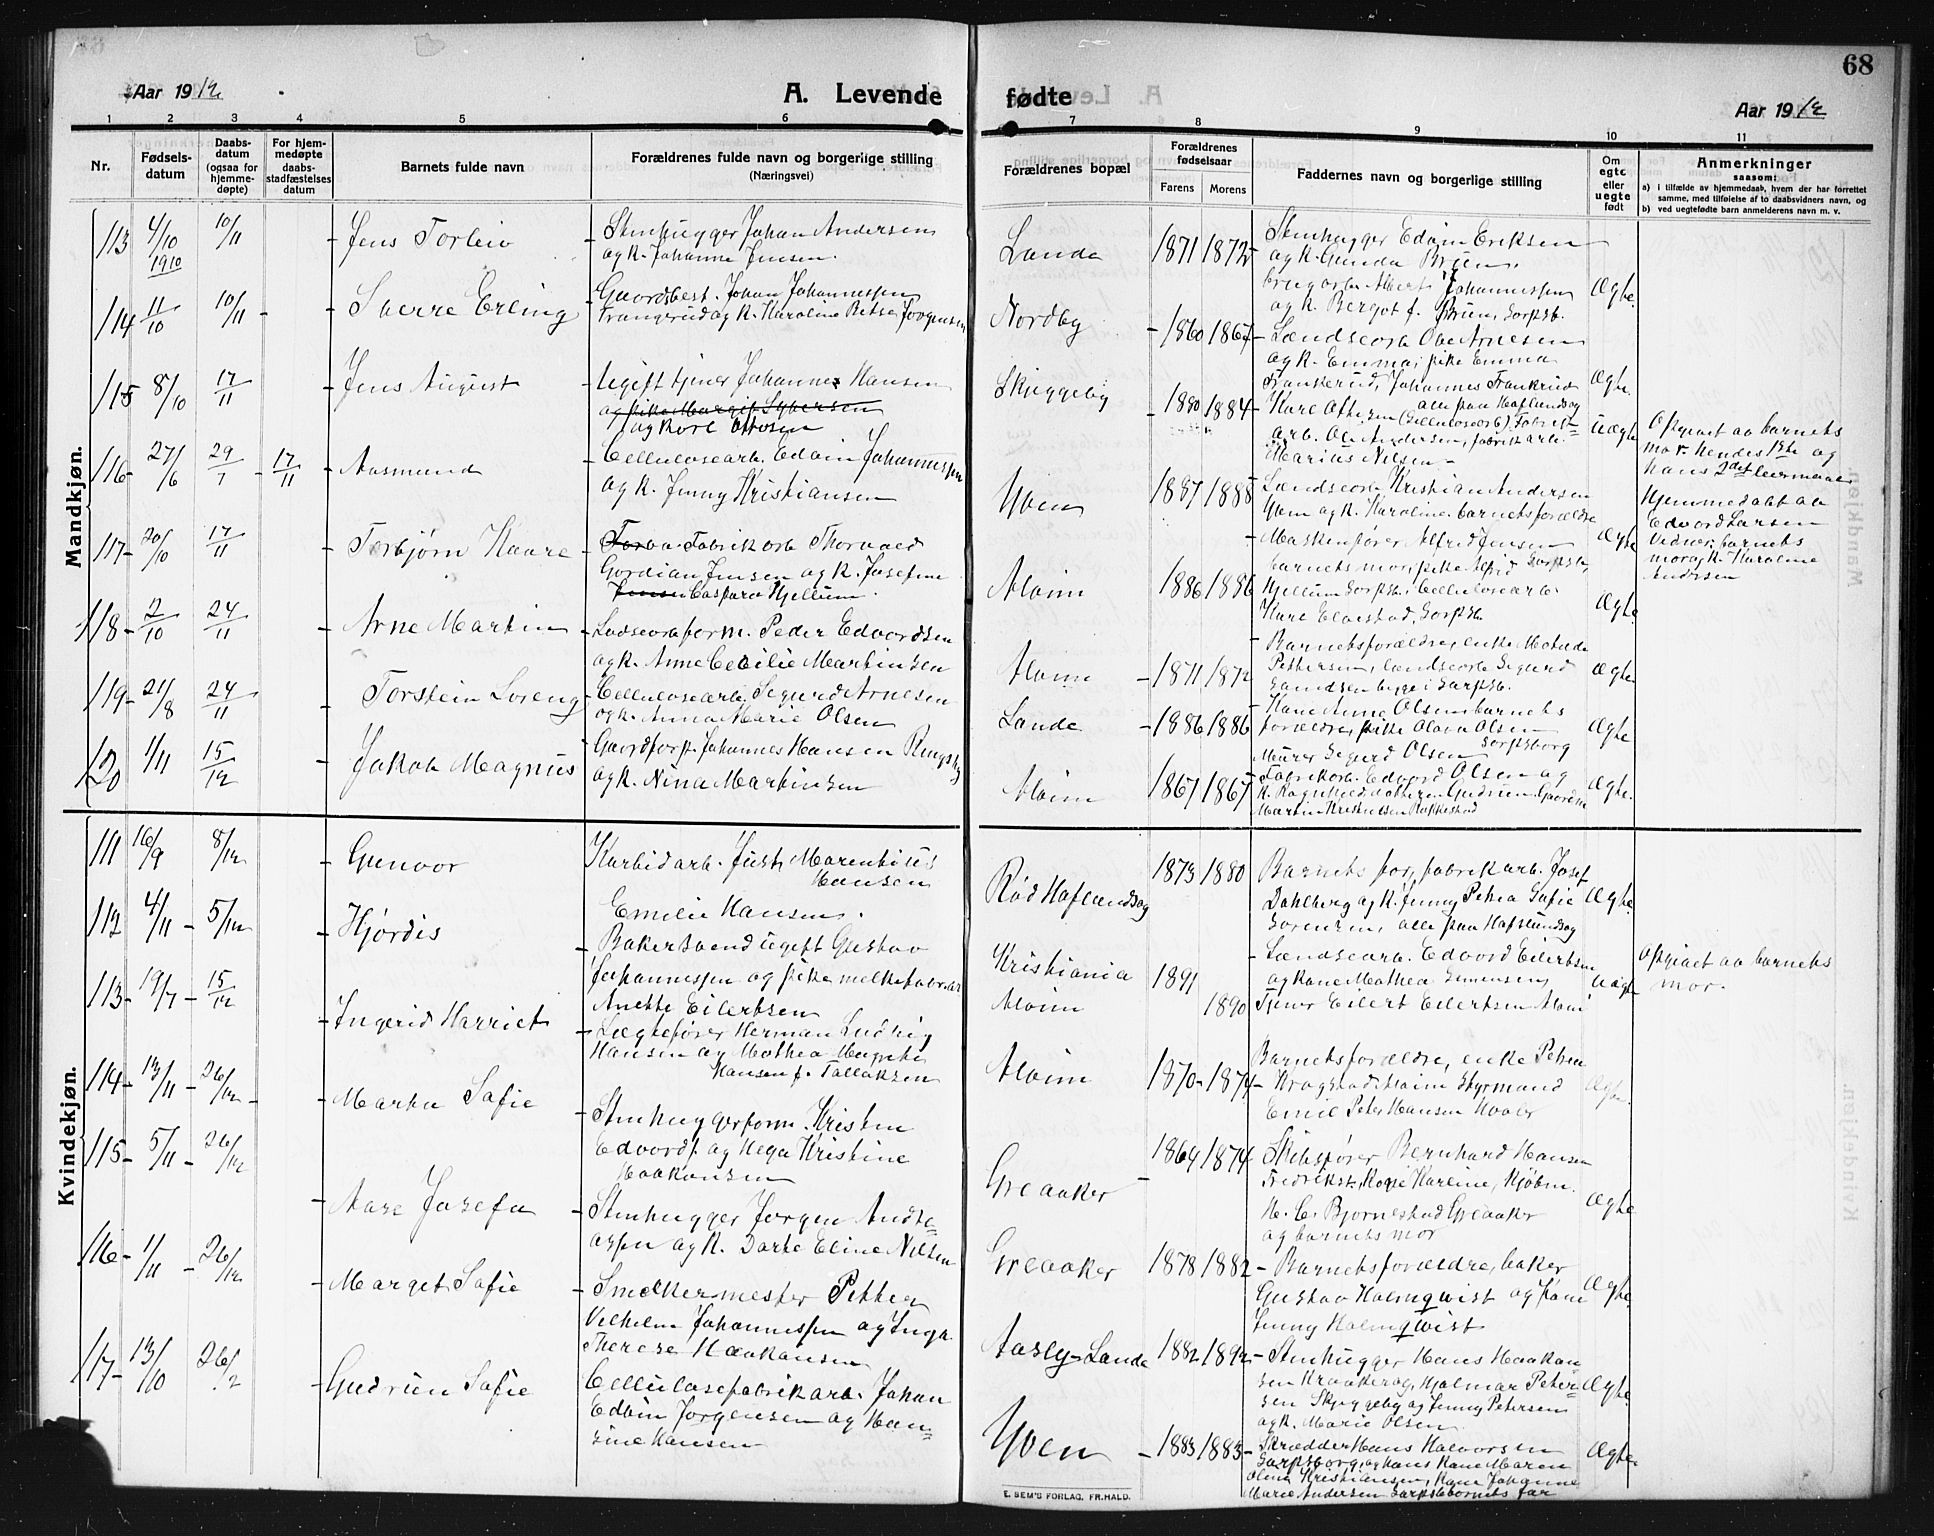 68
Aar 1912
A. Levende fødte
Aar 1912
1 2 3 4 5 6 7 8 9 10 11
Nr.
Fødsels-datum
Daabs-datum (ogsaa for hjemme-døpte)
For hjem-medøpte daabs-stadfæstelses datum
Barnets fulde navn
Forældrenes fulde navn og borgerlige stilling
(Næringsvei)
Forældrenes bopæl
Forældrenes fødselsaar
Farens Morens
Faddernes navn og borgerlige stilling
Om egte eller uegte født
Anmerkninger
saasom:
a) i tilfælde av hjemmedaab, hvem der har forrettet
samme, med tilføielse af to daabsvidners navn, og
b) ved uegtefødte barn anmelderens navn m. v.
Mandkjøn.
113 4/10 1910 10/11 Jens Torleiv
Stenhugger Johan Andersen
og k. Johanne Jensen.
Lande 1871 1872
Stenhugger Edvin Eriksen
og k. Gunda
Johannessen
og k. Bergot f. Brun, Sarpsb.
Ægte
114 11/10 10/11 Sverre Erling
Gaardsbest. Johan Johannessen
og k. Karoline Betse Jørgensen
Nordby 1860 1867
Landsearb. Ole Arnesen
og k. Emma, pike Emma
Johannes
Ægte
115 8/10 17/11 Jens August
Ugift tjener Johannes Hansen
og pike Margit Syversen
Skjeggeby 1880 1884
alle paa Hafslundsøy
arb. Ole Andersen, fabrikarb.
Marius Nilsen
Uægte
Opgivet av barnets
mor. Hendes 1ste og
hans 2det leiermaal
116 27/6 29/7 17/11 Aasmund
Cellulosearb. Edvin Johannessen
og k. Jenny Kristiansen
Yven 1887 1888
Landsearb. Kristian Andersen
Yven og k. Karoline, barnets forældre
Ægte
Hjemmedøbt av
Edvard Larsen
Vidner: barnets
mor og k. Karoline
Andersen
117 20/10 17/11 Torbjørn Kaare
Fabrikarb. Thorvald
Gordian Jensen og k. Josefine
Caspara Hjellum.
Alvim 1886 1886
Maskinfører Alfred Jensen
barnets mor, pike Sarpsb.
Hjellum Sarpsb. Cellulosearb.
Kare Sarpsb.
Ægte
118 2/10 24/11 Arne Martin
Peder Edvardsen
og k. Anne Cecilie Martinsen
Alvim 1871 1872
Barnets forældre, enke
Pettersen, landsearb. Sigurd
begge i Sarpsb.
Ægte
119 21/8 24/11 Torstein Loreng
Cellulosearb. Sigurd Arnesen
og k. Anna Marie Olsen
Lande 1886 1886
Kone Anne Olsen barnets
forældre, pike Olava Olsen
Murer Sigurd Olsen Sarpsborg
Ægte
120 1/11 15/12 Jakob Magnus
Gaardforp. Johannes Hansen Ringsby
og k. Nina Martinsen
Alvim 1867 1867
Fabrikarb. Edvard Olsen og
k.
Martin Kristensen Rakkestad
Ægte.
Kvindekjøn.
111 16/9 8/12 Gunvor
Karbidarb. Just Marentius
Hansen
Emilie Hansen.
Rød Hafslundsøy 1873 1880
Barnets far, fabrikarb. Josef
Dahlberg og k. Jenny Petrea Sofie
Sorensen, alle paa Hafslundsøy
Ægte
112 4/11 5/12 Hjørdis
Bakersvend ugift Gustav
Johannessen og pike
Anette Eilertsen
Kristiania 1891
Alvim 1890
Landsearb. Edvard Eilertsen
og kone Mathea Simensen
Tjener Eilert Eilertsen Alvim
Uægte
Opgivet av barnets
mor.
113 19/7 15/12 Ingerid Harriet
Lægtefører Herman Ludvig
Hansen og Mathea
Hansen f. Tallaksen
Alvim 1870 1874
Barnets forældre, enke Petrea
Alvim Styrmand
Emil Peter Hansen
Ægte.
114 13/11 26/12 Marta Sofie
Stenhuggerform. Kristen
Edvards. og Hega Kristine
Haakonsen
Greaaker 1864 1874
Skibsfører Bernhard Hansen
Fredrikst. Karline, Kjøbm.
H. C. Bjørnestad Greaaker
og barnets mor
Ægte
115 5/11 26/12 Aase Josefa
Stenhugger Jørgen Andre-
assen og k. Dorte Eline Nilsen
Greaaker 1878 1882
Barnets forældre, baker
Gustav Holmqwist og frøken
Jenny Holmqwist
Ægte
116 1/11 26/12 Marget Sofie
Smeltermester Petter
Vilhelm Johannessen og Inga
Therese Haakonsen
Aasly-Lande 1882 1892
Stenhugger Hans Haakon-
sen og Hjalmar Peter-
sen Skjeggeby og Jenny Petersen
og k. Marie Olsen
Ægte
117 13/10 26/12 Gudrun Sofie
Cellulosefabrikarb. Johan
Edvin Jørgensen og Han-
sine Hansen
Yven 1883 1883
Skrædder Hans Halvorsen
Sarpsborg, og hans kone Maren
Olena Kristiansen, kone Johanne
Marie Andersen Sarpsb. barnets far
Ægte
E. SEM'S FORLAG, FR.HALD.